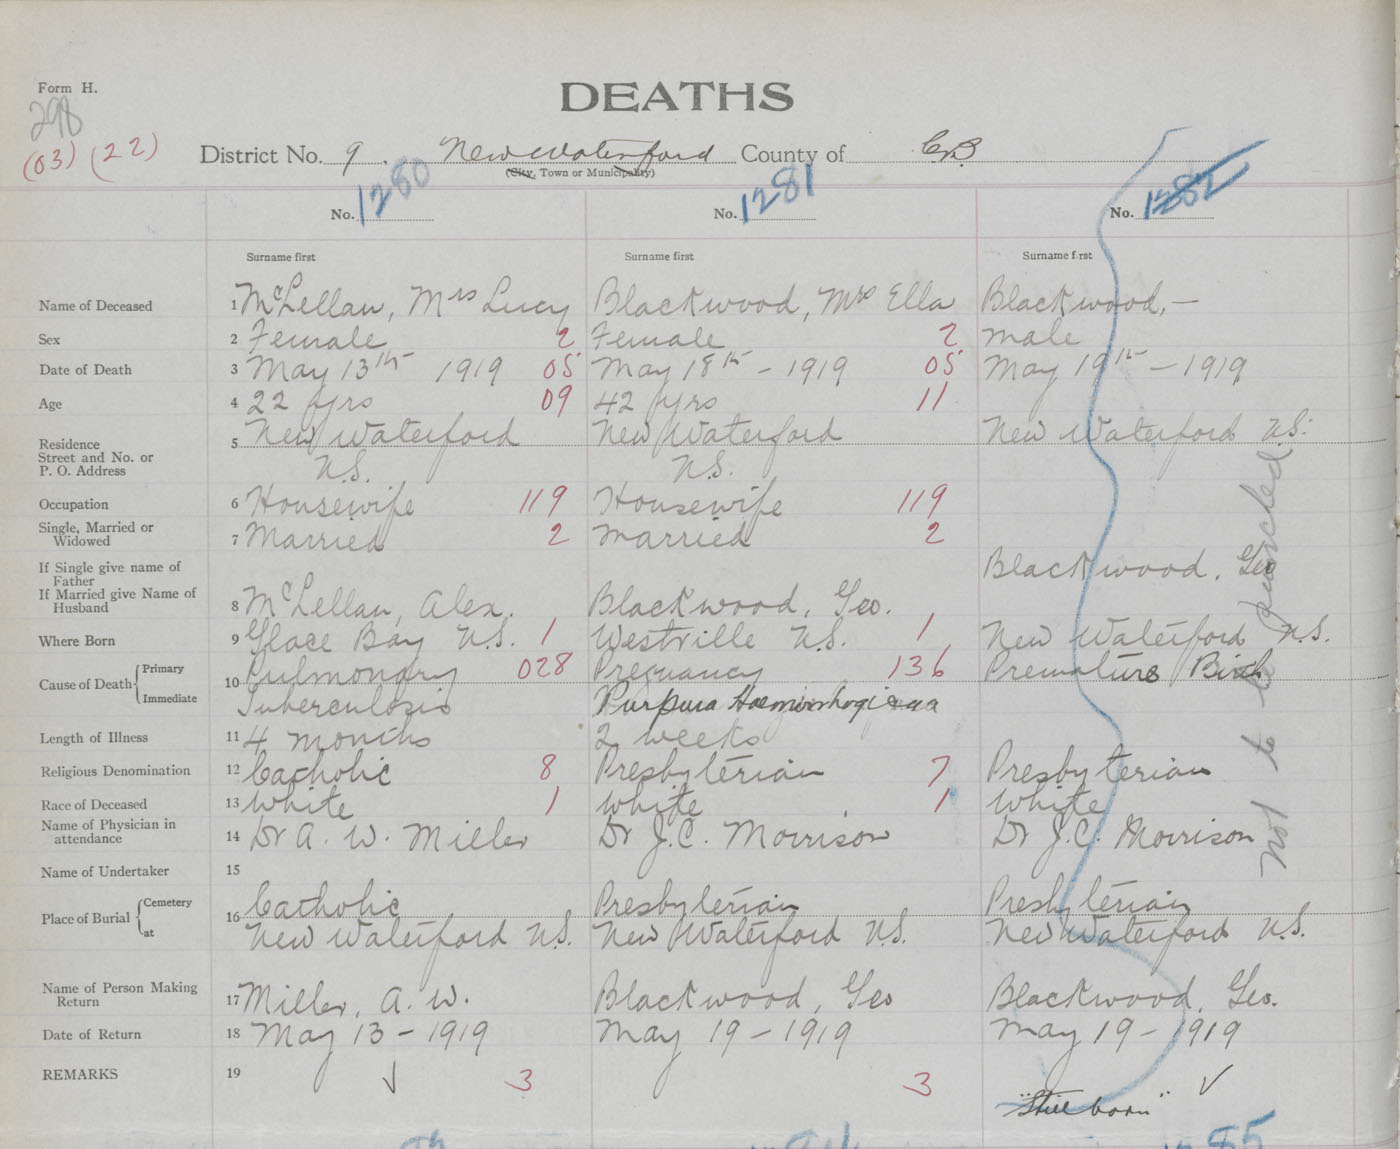 Form H.
298
(03) (22)
DEATHS
District No. 9, New Waterford County of C.B.
(City, Town or Municipality)
No. 1280 No. 1281 No. 1282
Surname first Surname first Surname first
Name of Deceased 1 McLellan, Mrs Lucy Blackwood, Mrs Ella Blackwood, —
Sex 2 Female 2 Female 2 male
Date of Death 3 May 13th 1919 05 May 18th – 1919 05 May 19th – 1919
Age 4 22 yrs 09 42 yrs 11
Residence
Street and No. or
P. O. Address
5 New Waterford New Waterford New Waterford N.S.
N.S. N.S.
Occupation 6 Housewife 119 Housewife 119
Single, Married or
Widowed
7 Married 2 Married 2
If Single give name of
Father
Blackwood, Geo
If Married give Name of
Husband
8 McLellan, Alex. Blackwood, Geo.
Where Born 9 Glace Bay N.S. 1 Westville N.S. 1 New Waterford N.S.
Cause of Death Primary 10 Pulmonary 028 Pregnancy 136 Premature Birth
Immediate Tuberculosis Purpura
Length of Illness 11 4 months 2 weeks
Religious Denomination 12 Catholic 8 Presbyterian 7 Presbyterian
Race of Deceased 13 White 1 White 1 White
Name of Physician in
attendance
14 Dr A. W. Miller Dr J.C. Morrison Dr J.C. Morrison
Name of Undertaker 15
Place of Burial Cemetery 16 Catholic Presbyterian Presbyterian
at New Waterford N.S. New Waterford N.S. New Waterford N.S.
Name of Person Making
Return
17 Miller, A. W. Blackwood, Geo Blackwood, Geo.
Date of Return 18 May 13 – 1919 May 19 – 1919 May 19 – 1919
REMARKS 19 3 3
"Still born"
Not to be punched
85